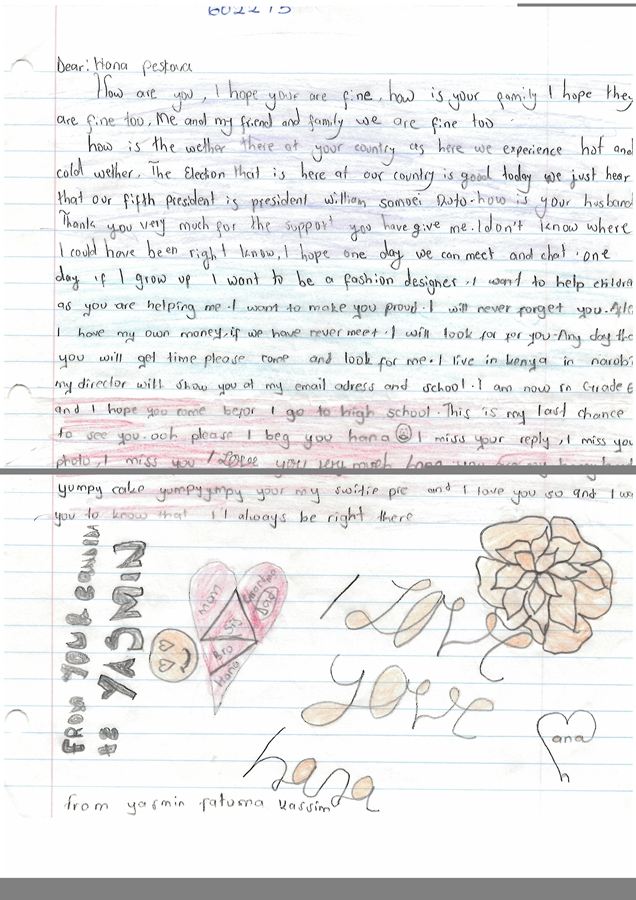 602275
Dear: Hana Peskova
How are you, I hope your are fine, how is your family I hope they
are fine too, Me and my friend and family we are fine too
how is the wether there at your country as here we experience hot and
cold wether. The Election that is here at our country is good today we just hear
that our fifth president is president william samoei Ruto. how is your husband
Thank you very much for the support you have give me. I don't know where
I could have been right know, I hope one day we can meet and chat. one
day if I grow up I want to be a fashion designer, I want to help childre
as you are helping me. I want to make you proud. I will never forget you.
I have my own money, if we have never meet. I will look for for you. Any day
you will get time please come and look for me. I live in kenya in narobi
my director will show you at my email adress and school. I am now in Grade 6
and I hope you come befor I go to high school. This is my last chance
to see you. ooh please I beg you hana I miss your reply, I miss you
photo, I miss you I Love you very much
yumpy cake yumpyympy your my switie pie and I love you so and I wa
you to know that I'll always be right there
FROM YOUR
YASMIN
Mom
Grandma
Dad
Sis
Bro
Hana
I LOVE
LOVE
hana
Hana
from yasmin fatuma kassim